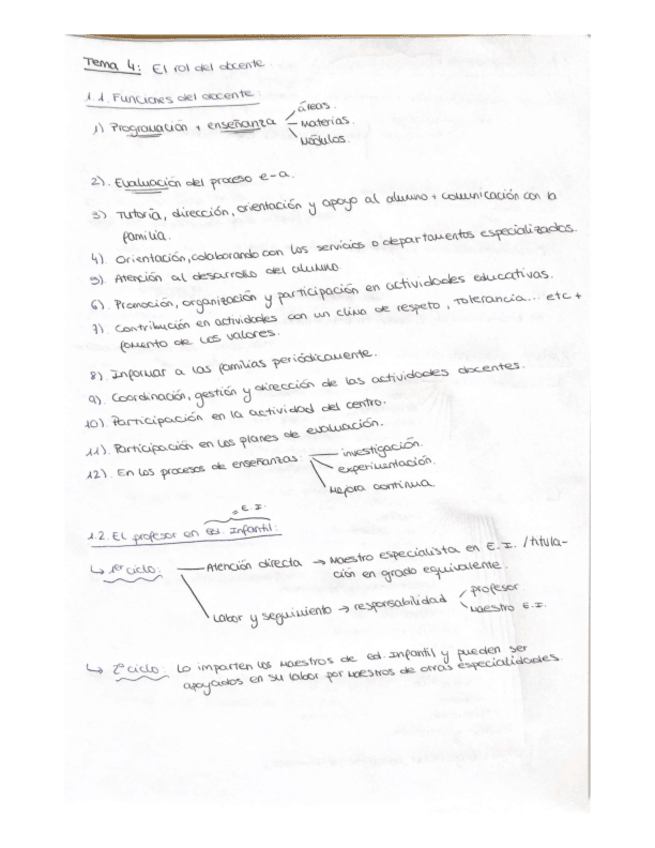 Tema 4: El rol del docente
1.1. Funciones del docente:
1) Programación + enseñanza
áreas.
materias.
Módulos.
2). Evaluación del proceso e-a.
3) Tutoría, dirección, orientación y apoyo al alumno + comunicación con la
familia.
4). Orientación, colaborando con los servicios o departamentos especializados.
5). Atención al desarrollo del alumno
6). Promoción, organización y participación en actividades educativas.
7). Contribución en actividades con un clima de respeto, tolerancia... etc +
fomento de los valores.
8). Informar a las familias periódicamente.
9). Coordinación, gestión y dirección de las actividades docentes.
10). Participación en la actividad del centro.
11). Participación en los planes de evaluación.
12). En los procesos de enseñanzas:
investigación.
experimentación.
Mejora continua
E.I.
1.2. El profesor en ed. Infantil:
↳ 1er ciclo:
Atención directa → Maestro especialista en E.I. /titula-
ción en grado equivalente.
Labor y seguimiento → responsabilidad
profesor
Maestro E.I.
↳ 2º ciclo: Lo imparten los maestros de ed. Infantil y pueden ser
apoyados en su labor por maestros de otras especialidades.